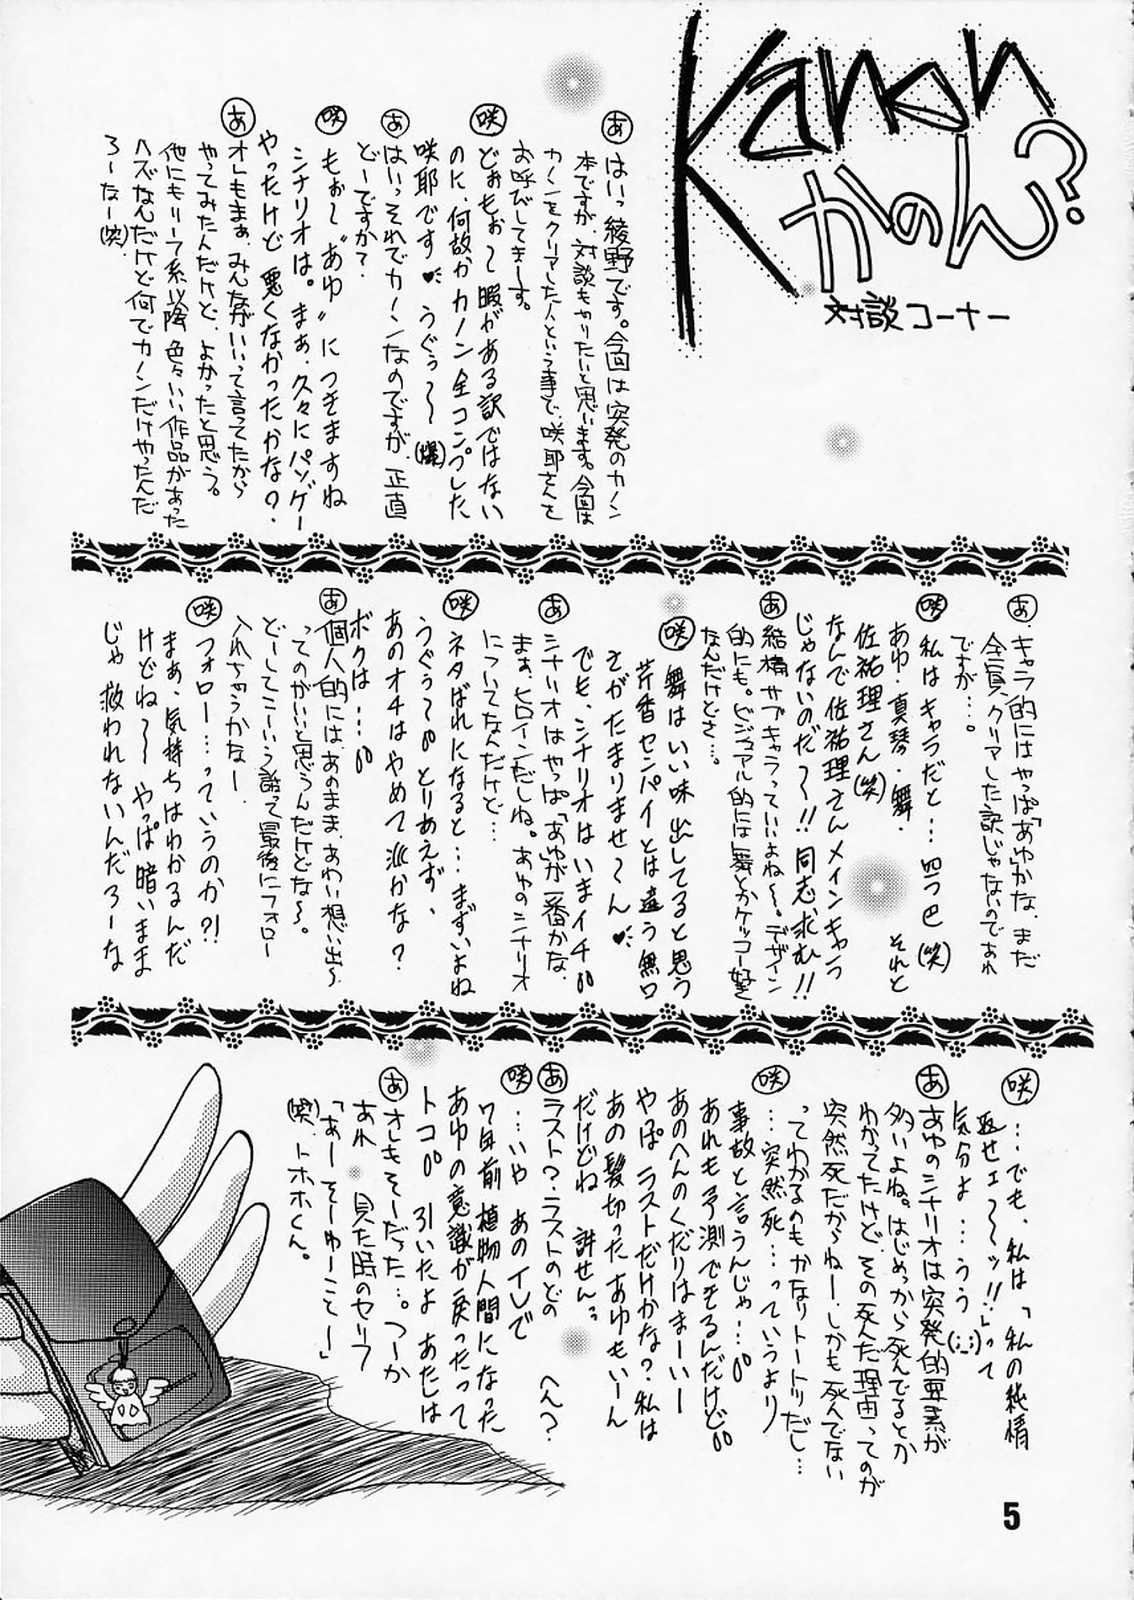 Kanon
かのん?
対談コーナー
あ はいっ綾野です。今回は突発のカノン
本ですが、対談もやりたいと思います。今回は
カノンをクリアした人という事で、咲耶さんを
お呼びしてまーす。
咲 どぉもぉ〜暇がある訳ではない
のに、何故かカノン全コンプした
咲耶です♥うぐぅ〜〜(爆)
あ はいっそれでカノンなのですが、正直
どーですか?
咲 もぉ〜"あゆ"につきますね
シナリオは。まぁ、久々にパソゲー
やったけど悪くなかったかな?
あ オレもまぁ、みんながいいって言ってたから
やってみたんだけど、よかったと思う。
他にもリーフ系以降色々いい作品があった
ハズなんだけど何でカノンだけやったんだ
ろーなー(笑)
あ キャラ的にはやっぱ「あゆ」かな、まだ
全員、クリアした訳じゃないのであれ
ですが…。
咲 私はキャラだと…四つ巴(笑)
あゆ・真琴・舞・それと
佐祐理さん(笑)
なんで佐祐理さんメインキャラ
じゃないのだ〜!!同志求む!!
あ 結構サブキャラっていいよね〜。デザイン
的にも。ビジュアル的には舞とかケッコー好き
なんだけどさ…。
咲 舞はいい味出してると思う
芹香センパイとは違う無口
さがたまりませ〜ん♥
でも、シナリオはいまイチ
あ シナリオはやっぱ「あゆ」が一番かな、
まぁ、ヒロインだしね。あゆのシナリオ
についてなんだけど…
咲 ネタばれになると…まずいよね
うぐぅ〜とりあえず、
あのオチはやめて欲しかな?
ボクは…。
あ 個人的には、あのまま、あわい想い出〜
ってのがいいと思うんだけどな〜。
どーしてこーいう話って最後にフォロー
入れちゃうかなー
咲 フォロー…っていうのか?!
まぁ、気持ちはわかるんだ
けどね〜〜やっぱ暗いまま
じゃ救われないんだろーな
咲 …でも、私は「私の純情
返せエ〜〜ッ!!」って
気分よ…うう(;_;)
あ あゆのシナリオは突発的要素が
多いよね。はじめっから死んでるとか
わかってたけど、その死んだ理由ってのが
突然死だからねー、しかも死んでない
ってわかるのもかなりトートツだし…
咲 …突然死…っていうより
事故と言うんじゃ…
あれも予測できるんだけど
あのへんのくだりはまーいー
やぽラストだけかな?私は
あの髪切ったあゆもいーん
だけどね許せんっ
あ ラスト?ラストのどのへん?
咲 …いやあのイレで
7年前植物人間になった
あゆの意識が戻ったって
トコ 引いたよあたしは
あ オレもそーだった…。つーか
あれ 見た時のセリフ
「あーそーゆーことー」
(笑)、トホホくん。
5